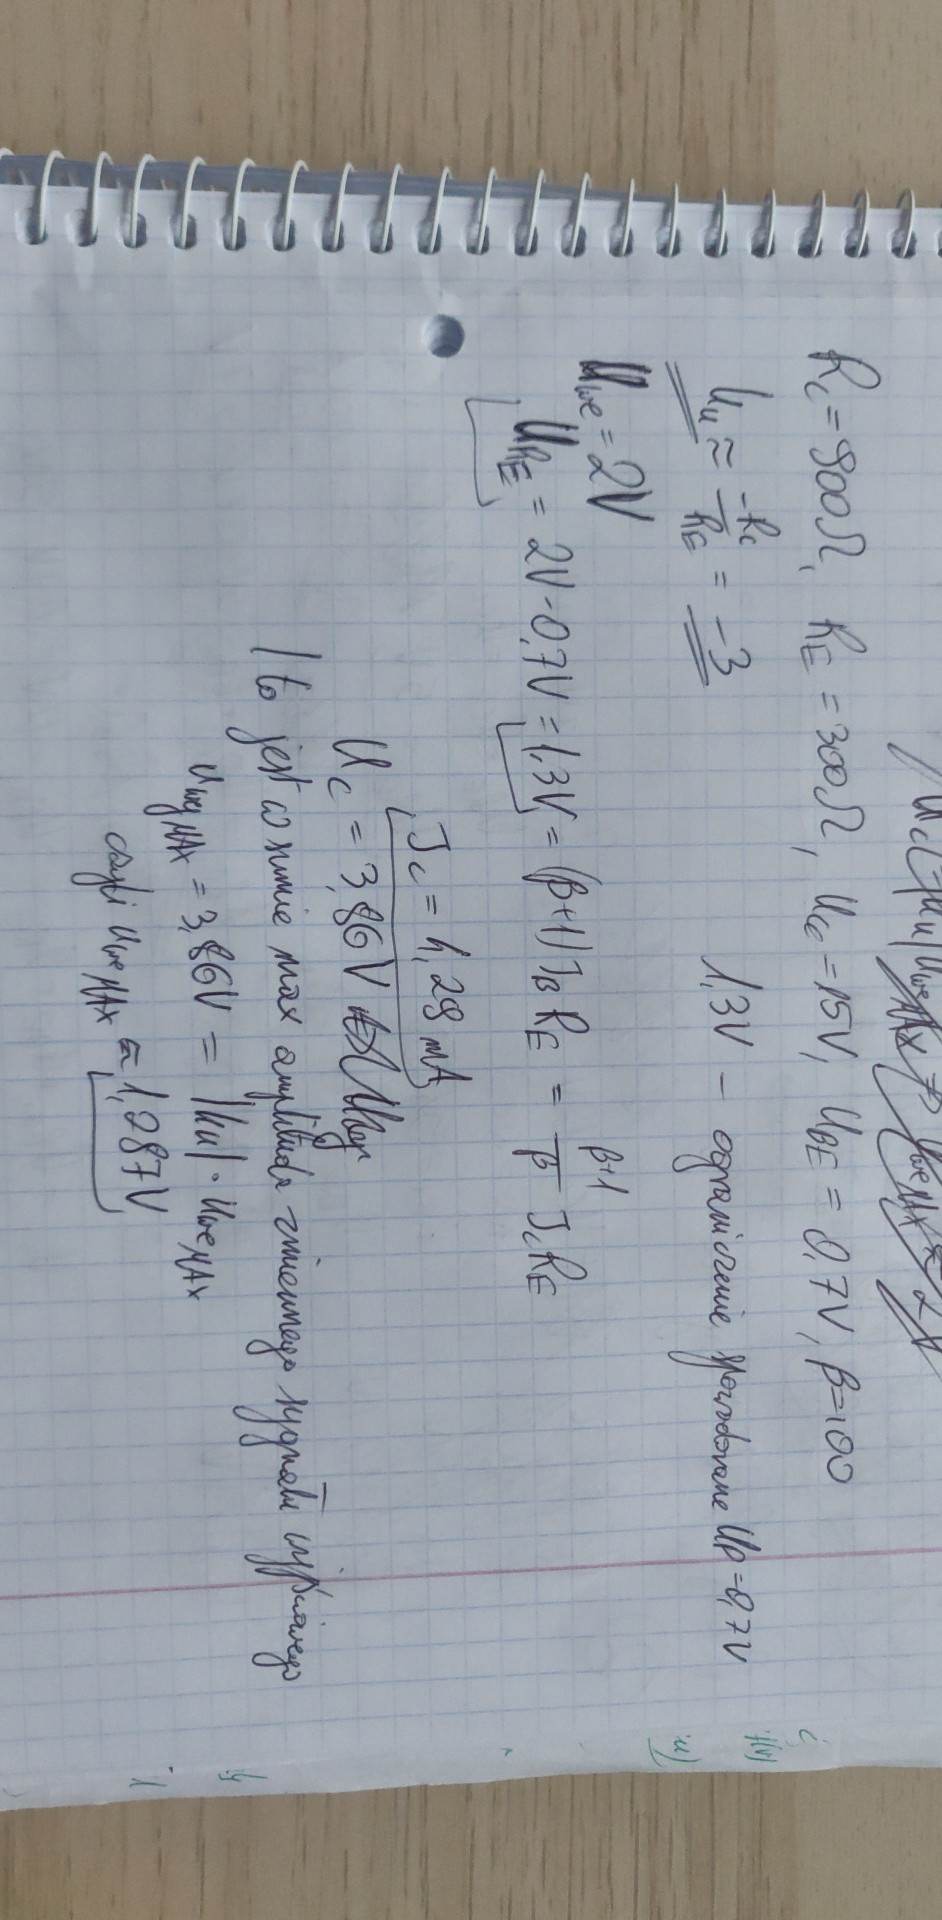 R_C = 900Ω, R_E = 300Ω, U_CC = 15V, U_BE = 0,7V, β=100
k_u ≈ -R_C/R_E = -3
1,3V – ograniczenie spowodowane U_P=0,7V
U_we = 2V
U_RE = 2V-0,7V = 1,3V = (β+1) I_B R_E = (β+1)/β I_C R_E
I_C = 4,29 mA
U_C = 3,86V
I to jest w sumie max amplituda zmiennego sygnału wyjściowego
U_wy MAX = 3,86V = |k_u| · U_we MAX
czyli U_we MAX = 1,287V